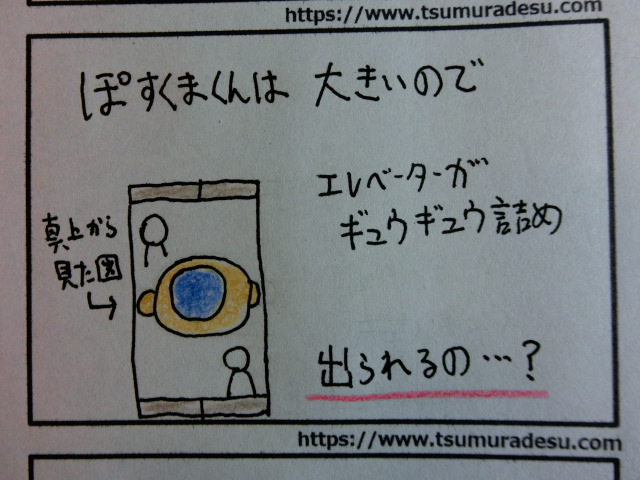 https://www.tsumuradesu.com/
ぽすくまくんは 大きいので
エレベーターが
ギュウギュウ詰め
真上から
見た図
出られるの…?
https://www.tsumuradesu.com